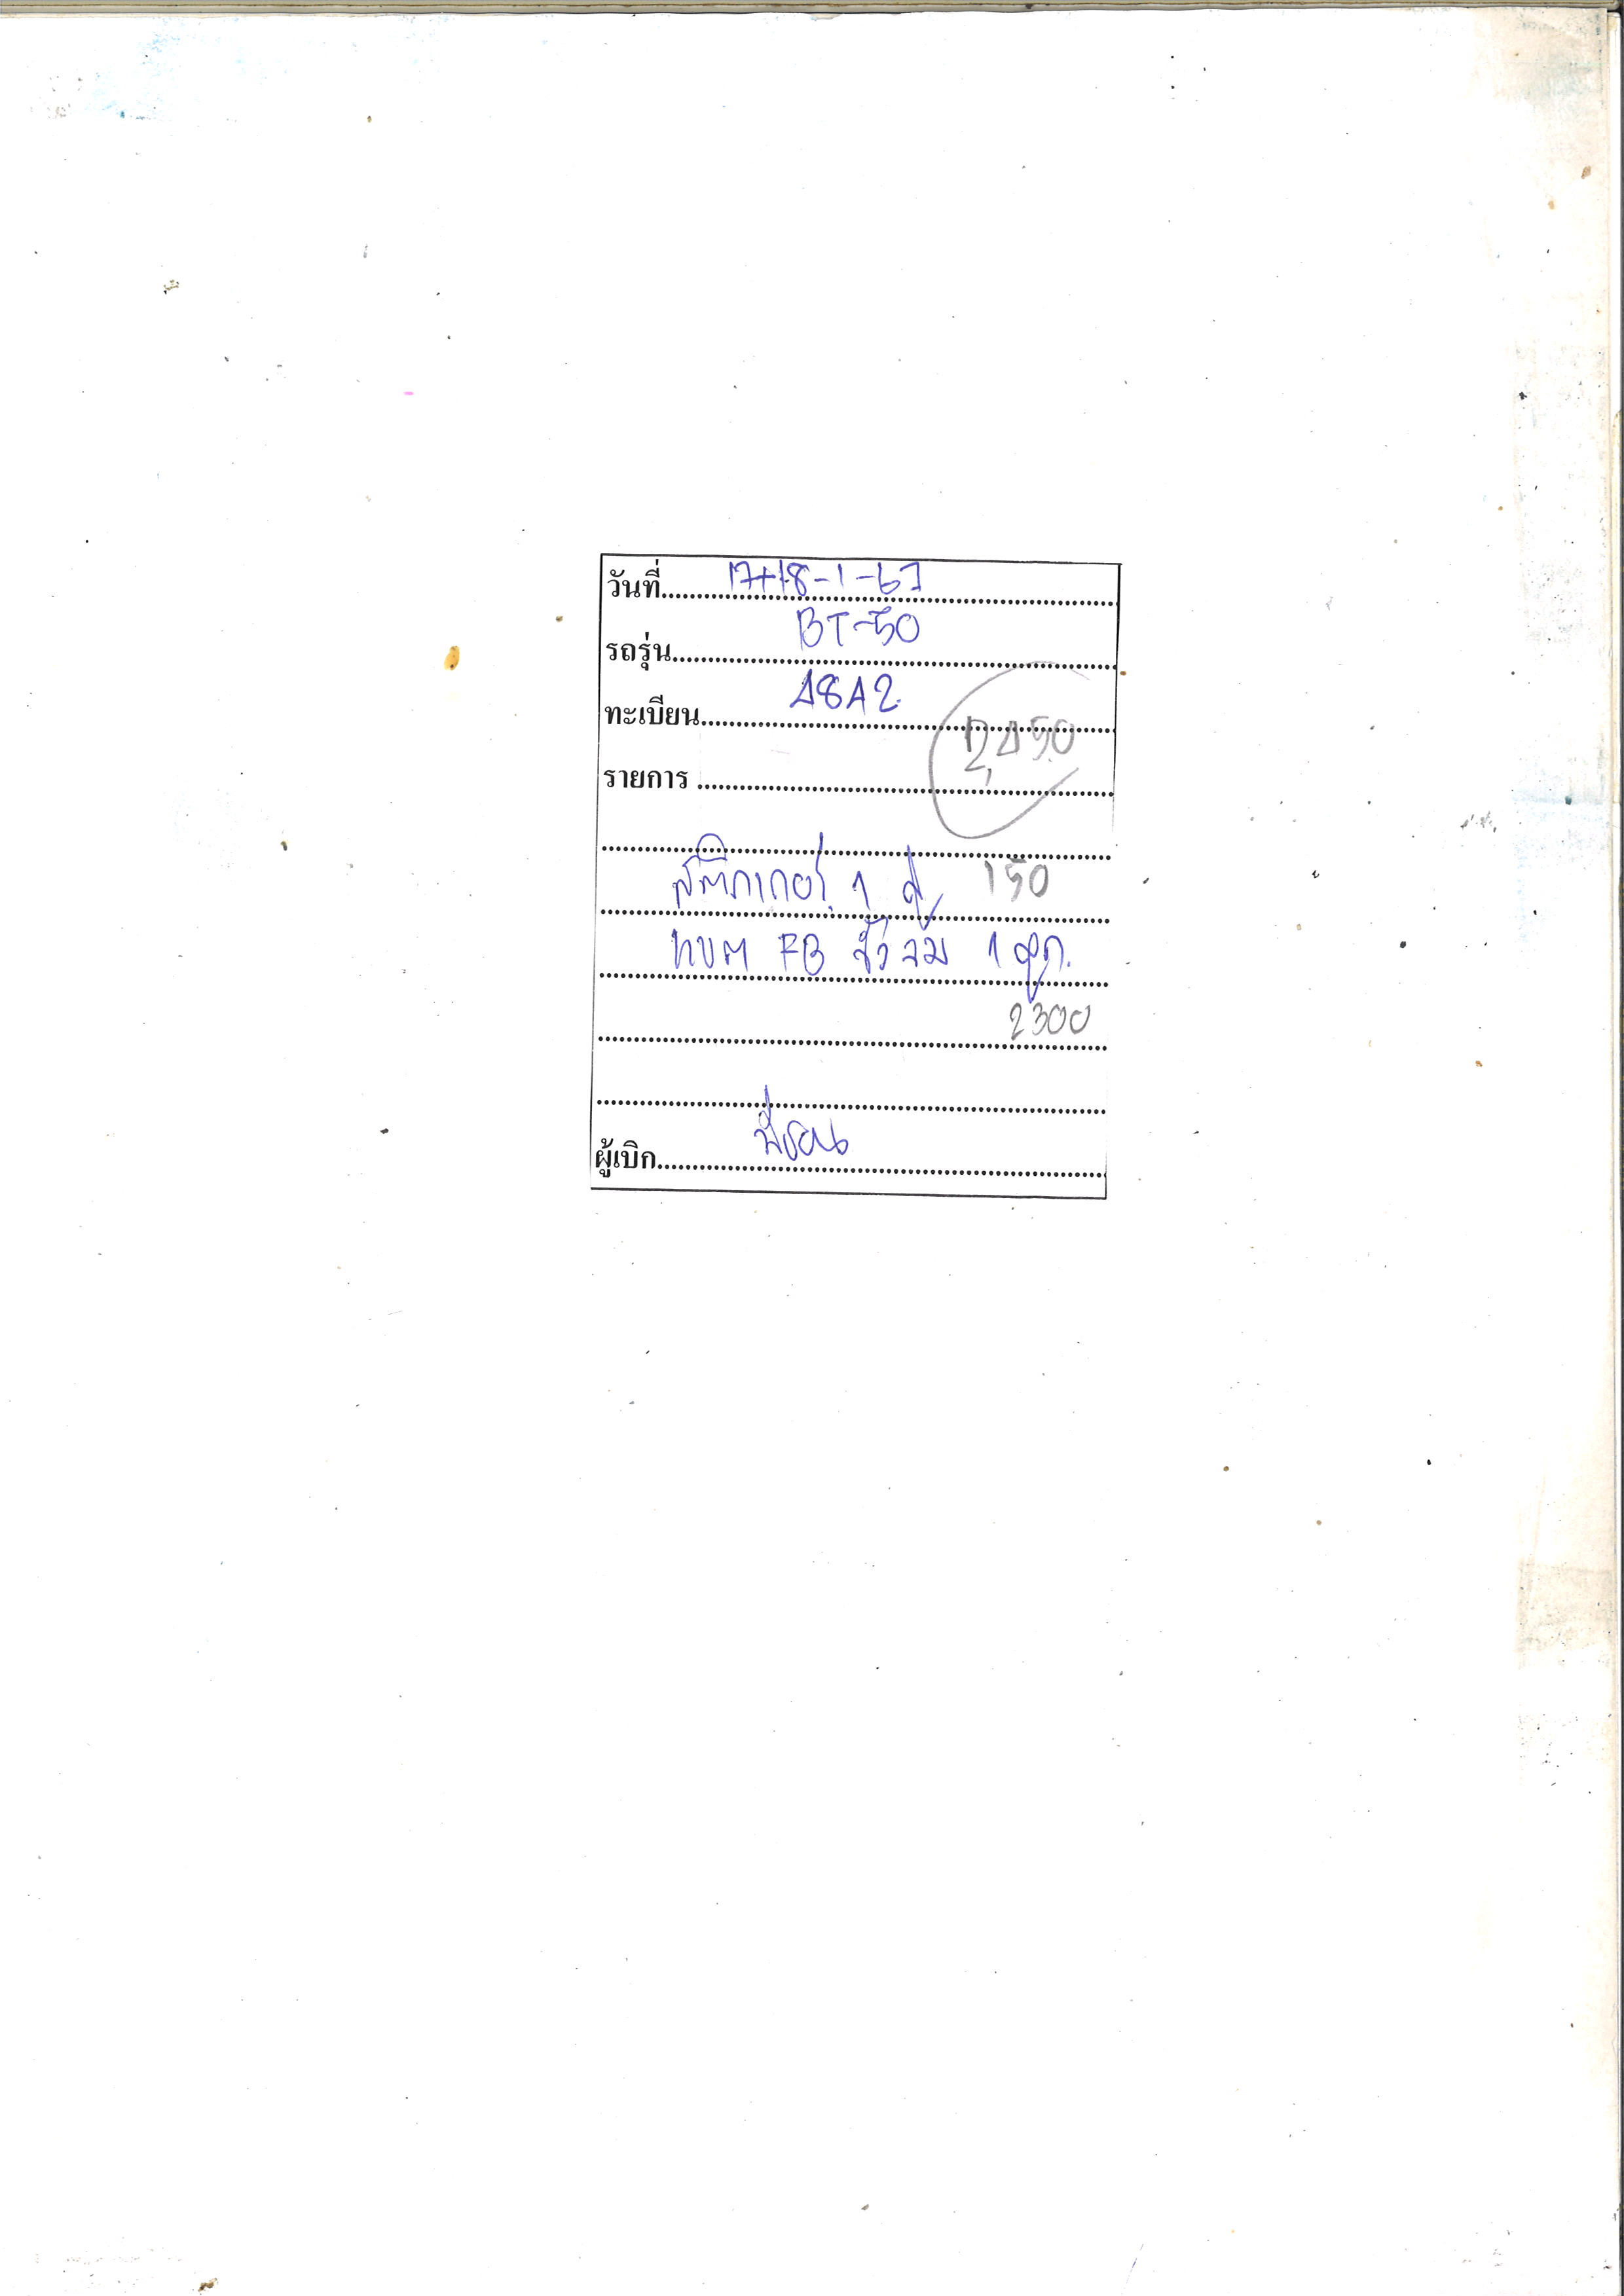 วันที่ 17+18-1-63
รถรุ่น BT-50
ทะเบียน 4842
2,450
รายการ
สติกเกอร์ 1 คู่ 150
FB 1 ลูก.
2300
ผู้เบิก